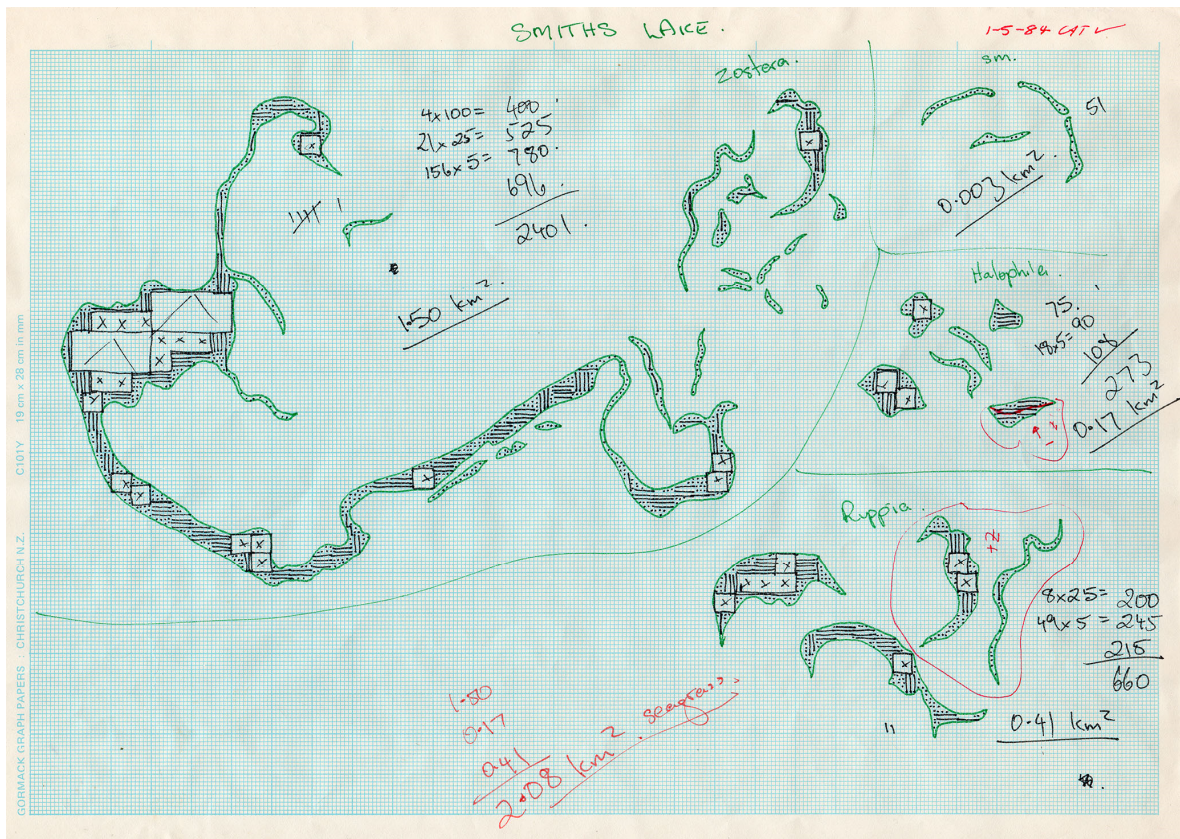 SMITHS LAKE.
1-5-84 CATV
Zostera.
4x100= 400
21x25= 525
156x5= 780.
696.
2401.
1.50 km².
sm.
51
0.003 km².
Halophila.
75.
18x5= 90
108
273
0.17 km²
Ruppia.
+Z
8x25= 200
49x5= 245
215
660
0.41 km²
1.50
0.17
0.41
2.08 km². seagrass.
GORMACK GRAPH PAPERS : CHRISTCHURCH N.Z. C101Y 19 cm x 28 cm in mm